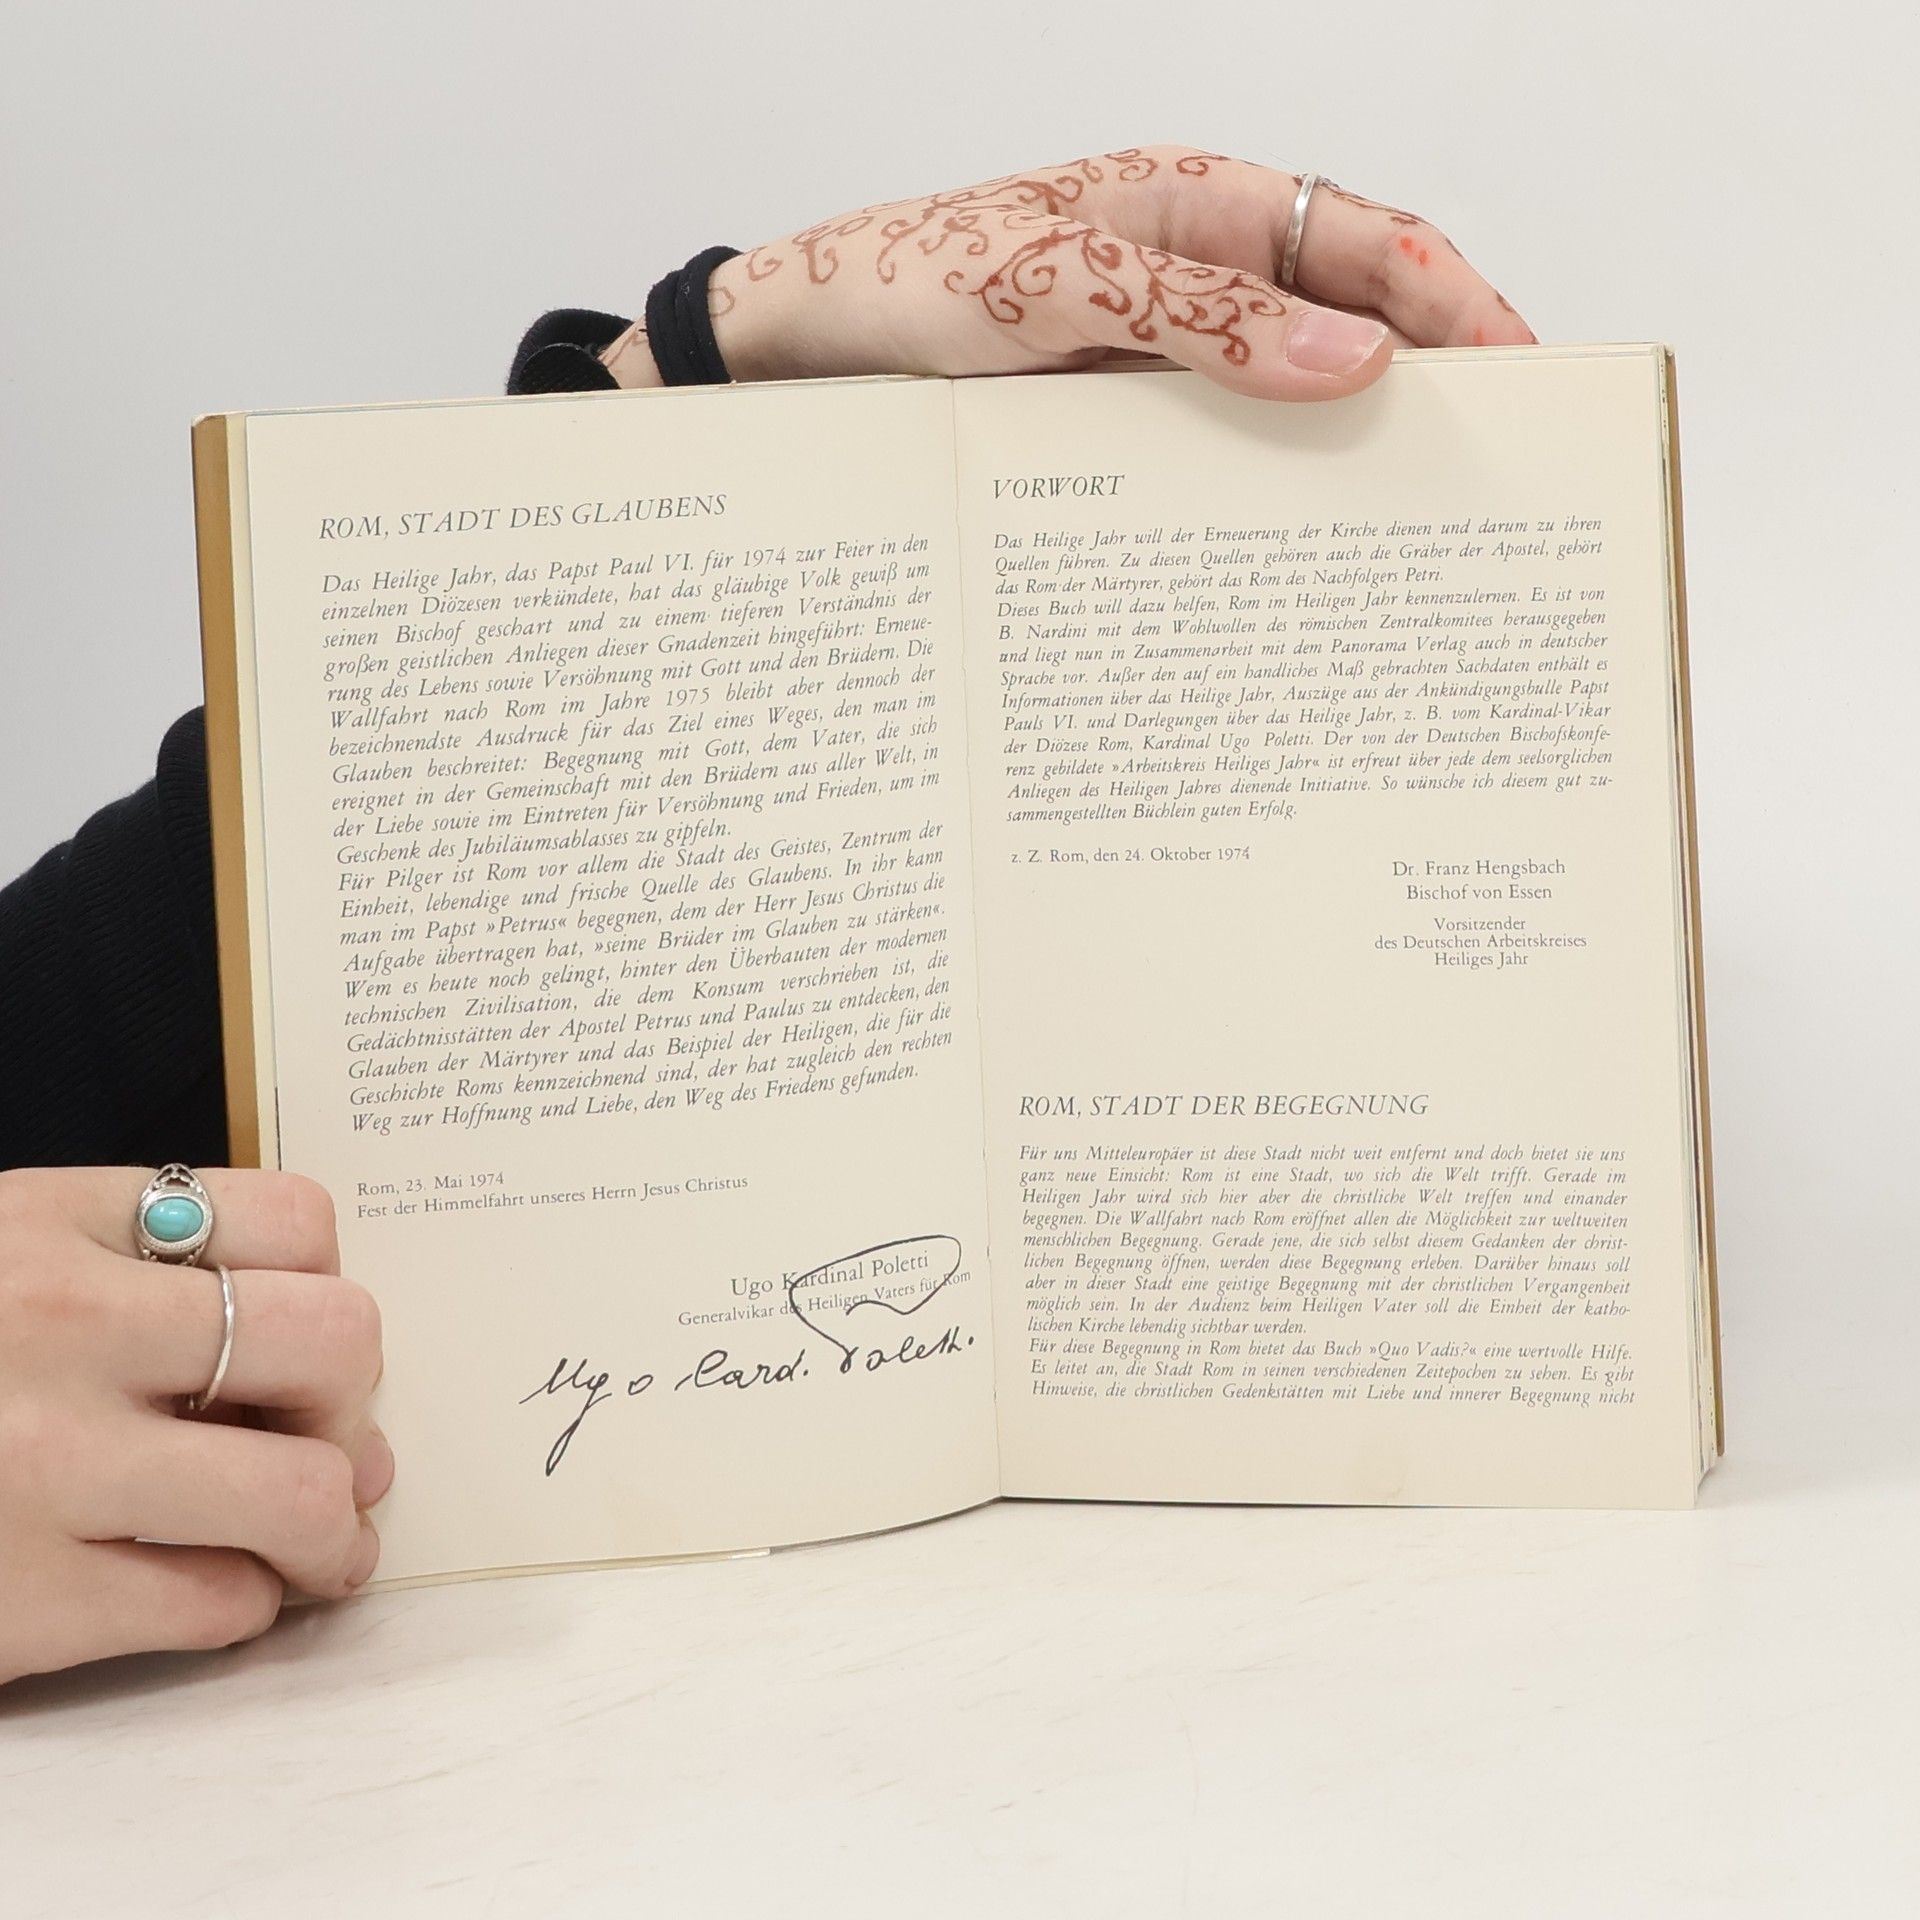 ROM, STADT DES GLAUBENS
Das Heilige Jahr, das Papst Paul VI. für 1974 zur Feier in den
einzelnen Diözesen verkündete, hat das gläubige Volk gewiß um
seinen Bischof geschart und zu einem tieferen Verständnis der
großen geistlichen Anliegen dieser Gnadenzeit hingeführt: Erneue-
rung des Lebens sowie Versöhnung mit Gott und den Brüdern. Die
Wallfahrt nach Rom im Jahre 1975 bleibt aber dennoch der
bezeichnendste Ausdruck für das Ziel eines Weges, den man im
Glauben beschreitet: Begegnung mit Gott, dem Vater, die sich
ereignet in der Gemeinschaft mit den Brüdern aus aller Welt, in
der Liebe sowie im Eintreten für Versöhnung und Frieden, um im
Geschenk des Jubiläumsablasses zu gipfeln.
Für Pilger ist Rom vor allem die Stadt des Geistes, Zentrum der
Einheit, lebendige und frische Quelle des Glaubens. In ihr kann
man im Papst »Petrus« begegnen, dem der Herr Jesus Christus die
Aufgabe übertragen hat, »seine Brüder im Glauben zu stärken«.
Wem es heute noch gelingt, hinter den Überbauten der modernen
technischen Zivilisation, die dem Konsum verschrieben ist, die
Gedächtnisstätten der Apostel Petrus und Paulus zu entdecken, den
Glauben der Märtyrer und das Beispiel der Heiligen, die für die
Geschichte Roms kennzeichnend sind, der hat zugleich den rechten
Weg zur Hoffnung und Liebe, den Weg des Friedens gefunden.
Rom, 23. Mai 1974
Fest der Himmelfahrt unseres Herrn Jesus Christus
Ugo Kardinal Poletti
Generalvikar des Heiligen Vaters für Rom
Ugo Card. Poletti.
VORWORT
Das Heilige Jahr will der Erneuerung der Kirche dienen und darum zu ihren
Quellen führen. Zu diesen Quellen gehören auch die Gräber der Apostel, gehört
das Rom der Märtyrer, gehört das Rom des Nachfolgers Petri.
Dieses Buch will dazu helfen, Rom im Heiligen Jahr kennenzulernen. Es ist von
B. Nardini mit dem Wohlwollen des römischen Zentralkomitees herausgegeben
und liegt nun in Zusammenarbeit mit dem Panorama Verlag auch in deutscher
Sprache vor. Außer den auf ein handliches Maß gebrachten Sachdaten enthält es
Informationen über das Heilige Jahr, Auszüge aus der Ankündigungsbulle Papst
Pauls VI. und Darlegungen über das Heilige Jahr, z. B. vom Kardinal-Vikar
der Diözese Rom, Kardinal Ugo Poletti. Der von der Deutschen Bischofskonfe-
renz gebildete »Arbeitskreis Heiliges Jahr« ist erfreut über jede dem seelsorglichen
Anliegen des Heiligen Jahres dienende Initiative. So wünsche ich diesem gut zu-
sammengestellten Büchlein guten Erfolg.
z. Z. Rom, den 24. Oktober 1974
Dr. Franz Hengsbach
Bischof von Essen
Vorsitzender
des Deutschen Arbeitskreises
Heiliges Jahr
ROM, STADT DER BEGEGNUNG
Für uns Mitteleuropäer ist diese Stadt nicht weit entfernt und doch bietet sie uns
ganz neue Einsicht: Rom ist eine Stadt, wo sich die Welt trifft. Gerade im
Heiligen Jahr wird sich hier aber die christliche Welt treffen und einander
begegnen. Die Wallfahrt nach Rom eröffnet allen die Möglichkeit zur weltweiten
menschlichen Begegnung. Gerade jene, die sich selbst diesem Gedanken der christ-
lichen Begegnung öffnen, werden diese Begegnung erleben. Darüber hinaus soll
aber in dieser Stadt eine geistige Begegnung mit der christlichen Vergangenheit
möglich sein. In der Audienz beim Heiligen Vater soll die Einheit der katho-
lischen Kirche lebendig sichtbar werden.
Für diese Begegnung in Rom bietet das Buch »Quo Vadis?« eine wertvolle Hilfe.
Es leitet an, die Stadt Rom in seinen verschiedenen Zeitepochen zu sehen. Es gibt
Hinweise, die christlichen Gedenkstätten mit Liebe und innerer Begegnung nicht